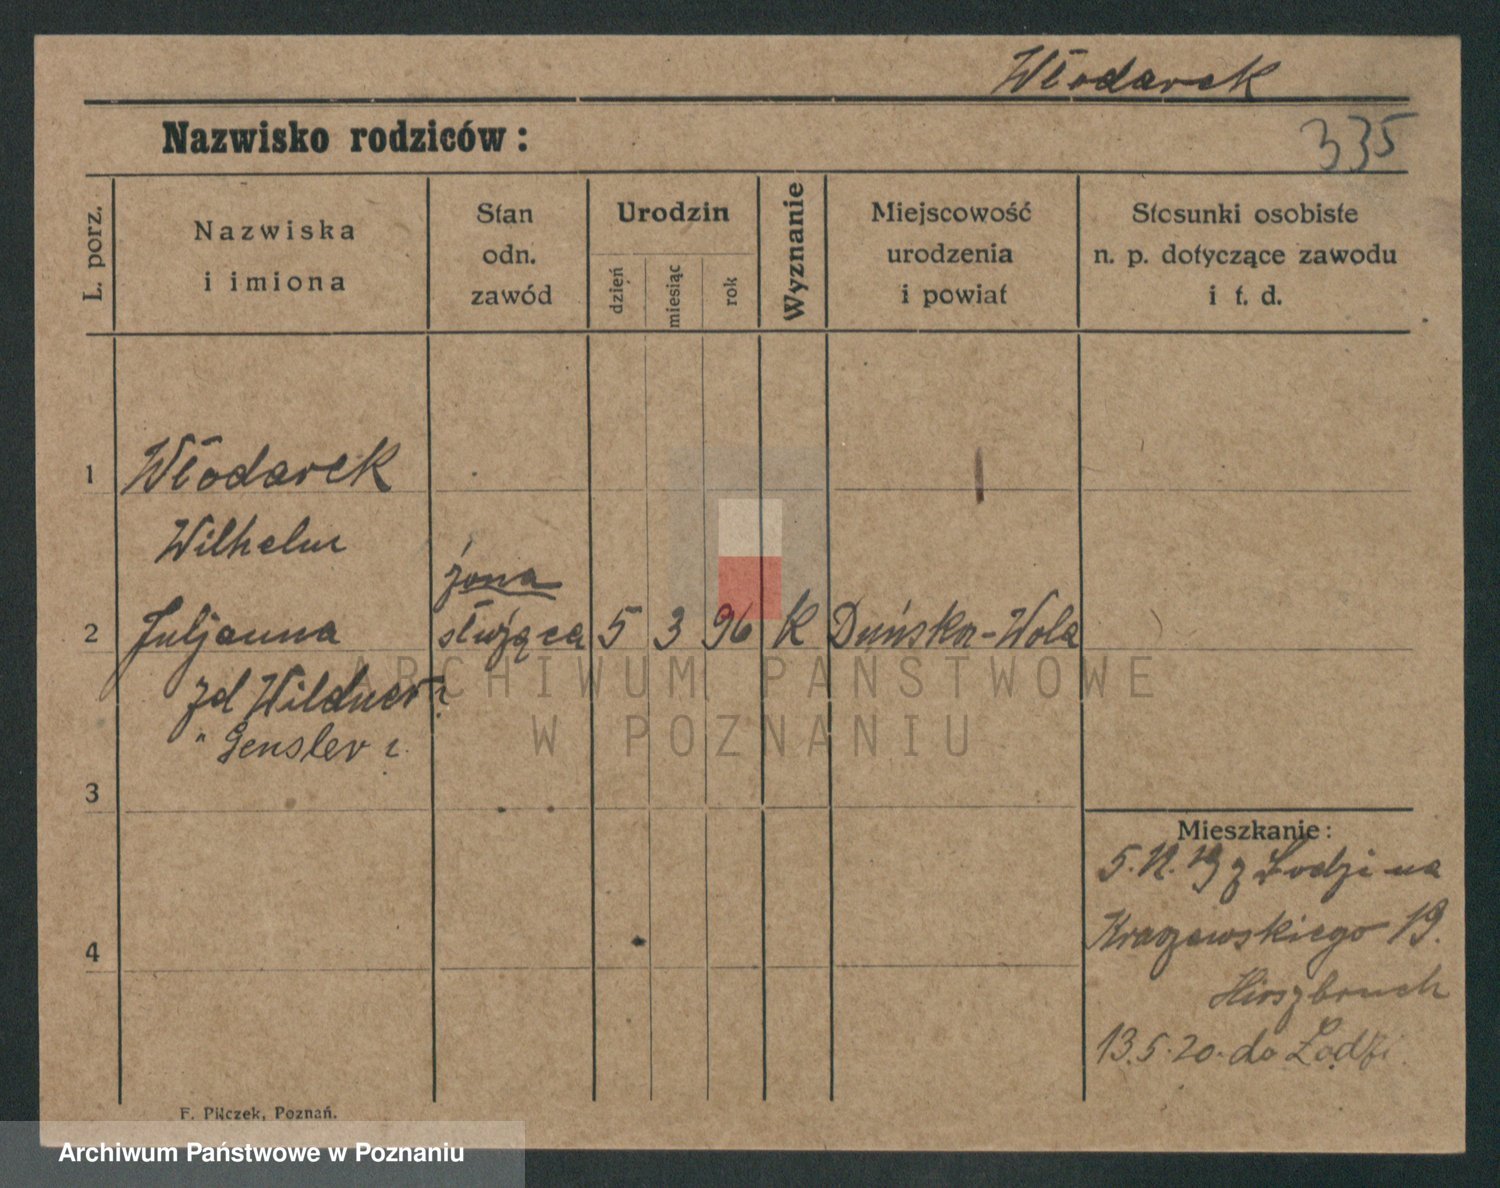 Włodarek
335
Nazwisko rodziców:
L. porz.
Nazwiska
i imiona
Stan
odn.
zawód
Urodzin
dzień
miesiąc
rok
Wyznanie
Miejscowość
urodzenia
i powiat
Stosunki osobiste
n. p. dotyczące zawodu
i t. d.
1
Włodarek
Wilhelm
żona
2 Juljanna służąca 5 3 96 K Duńska-Wola
zd Wildner
" Gensler
3
4
Mieszkanie:
5. 12. 19 z Łodzi na
Kraszewskiego 19.
Hirszbruch
13.5.20. do Łodzi
F. Pilczek, Poznań.
ARCHIWUM PAŃSTWOWE
W POZNANIU
Archiwum Państwowe w Poznaniu